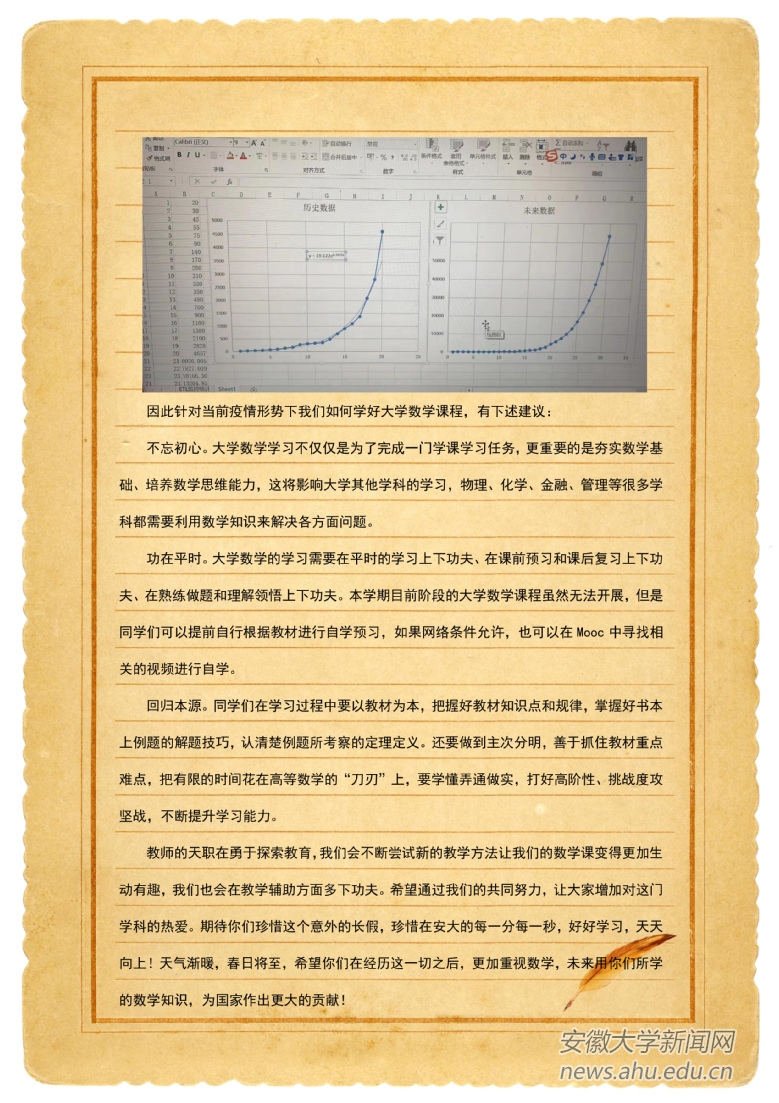 Calibri (正文)
自动换行
常规
自动求和
合并后居中
条件格式
单元格样式
插入
删除
字体
对齐方式
数字
样式
单元格
历史数据
未来数据
Sheet1
因此针对当前疫情形势下我们如何学好大学数学课程，有下述建议：
不忘初心。大学数学学习不仅仅是为了完成一门学课学习任务，更重要的是夯实数学基
础、培养数学思维能力，这将影响大学其他学科的学习，物理、化学、金融、管理等很多学
科都需要利用数学知识来解决各方面问题。
功在平时。大学数学的学习需要在平时的学习上下功夫、在课前预习和课后复习上下功
夫、在熟练做题和理解领悟上下功夫。本学期目前阶段的大学数学课程虽然无法开展，但是
同学们可以提前自行根据教材进行自学预习，如果网络条件允许，也可以在 Mooc 中寻找相
关的视频进行自学。
回归本源。同学们在学习过程中要以教材为本，把握好教材知识点和规律，掌握好书本
上例题的解题技巧，认清楚例题所考察的定理定义。还要做到主次分明，善于抓住教材重点
难点，把有限的时间花在高等数学的“刀刃”上，要学懂弄通做实，打好高阶性、挑战度攻
坚战，不断提升学习能力。
教师的天职在勇于探索教育，我们会不断尝试新的教学方法让我们的数学课变得更加生
动有趣，我们也会在教学辅助方面多下功夫。希望通过我们的共同努力，让大家增加对这门
学科的热爱。期待你们珍惜这个意外的长假，珍惜在安大的每一分每一秒，好好学习，天天
向上！天气渐暖，春日将至，希望你们在经历这一切之后，更加重视数学，未来用你们所学
的数学知识，为国家作出更大的贡献！
安徽大学新闻网
news.ahu.edu.cn